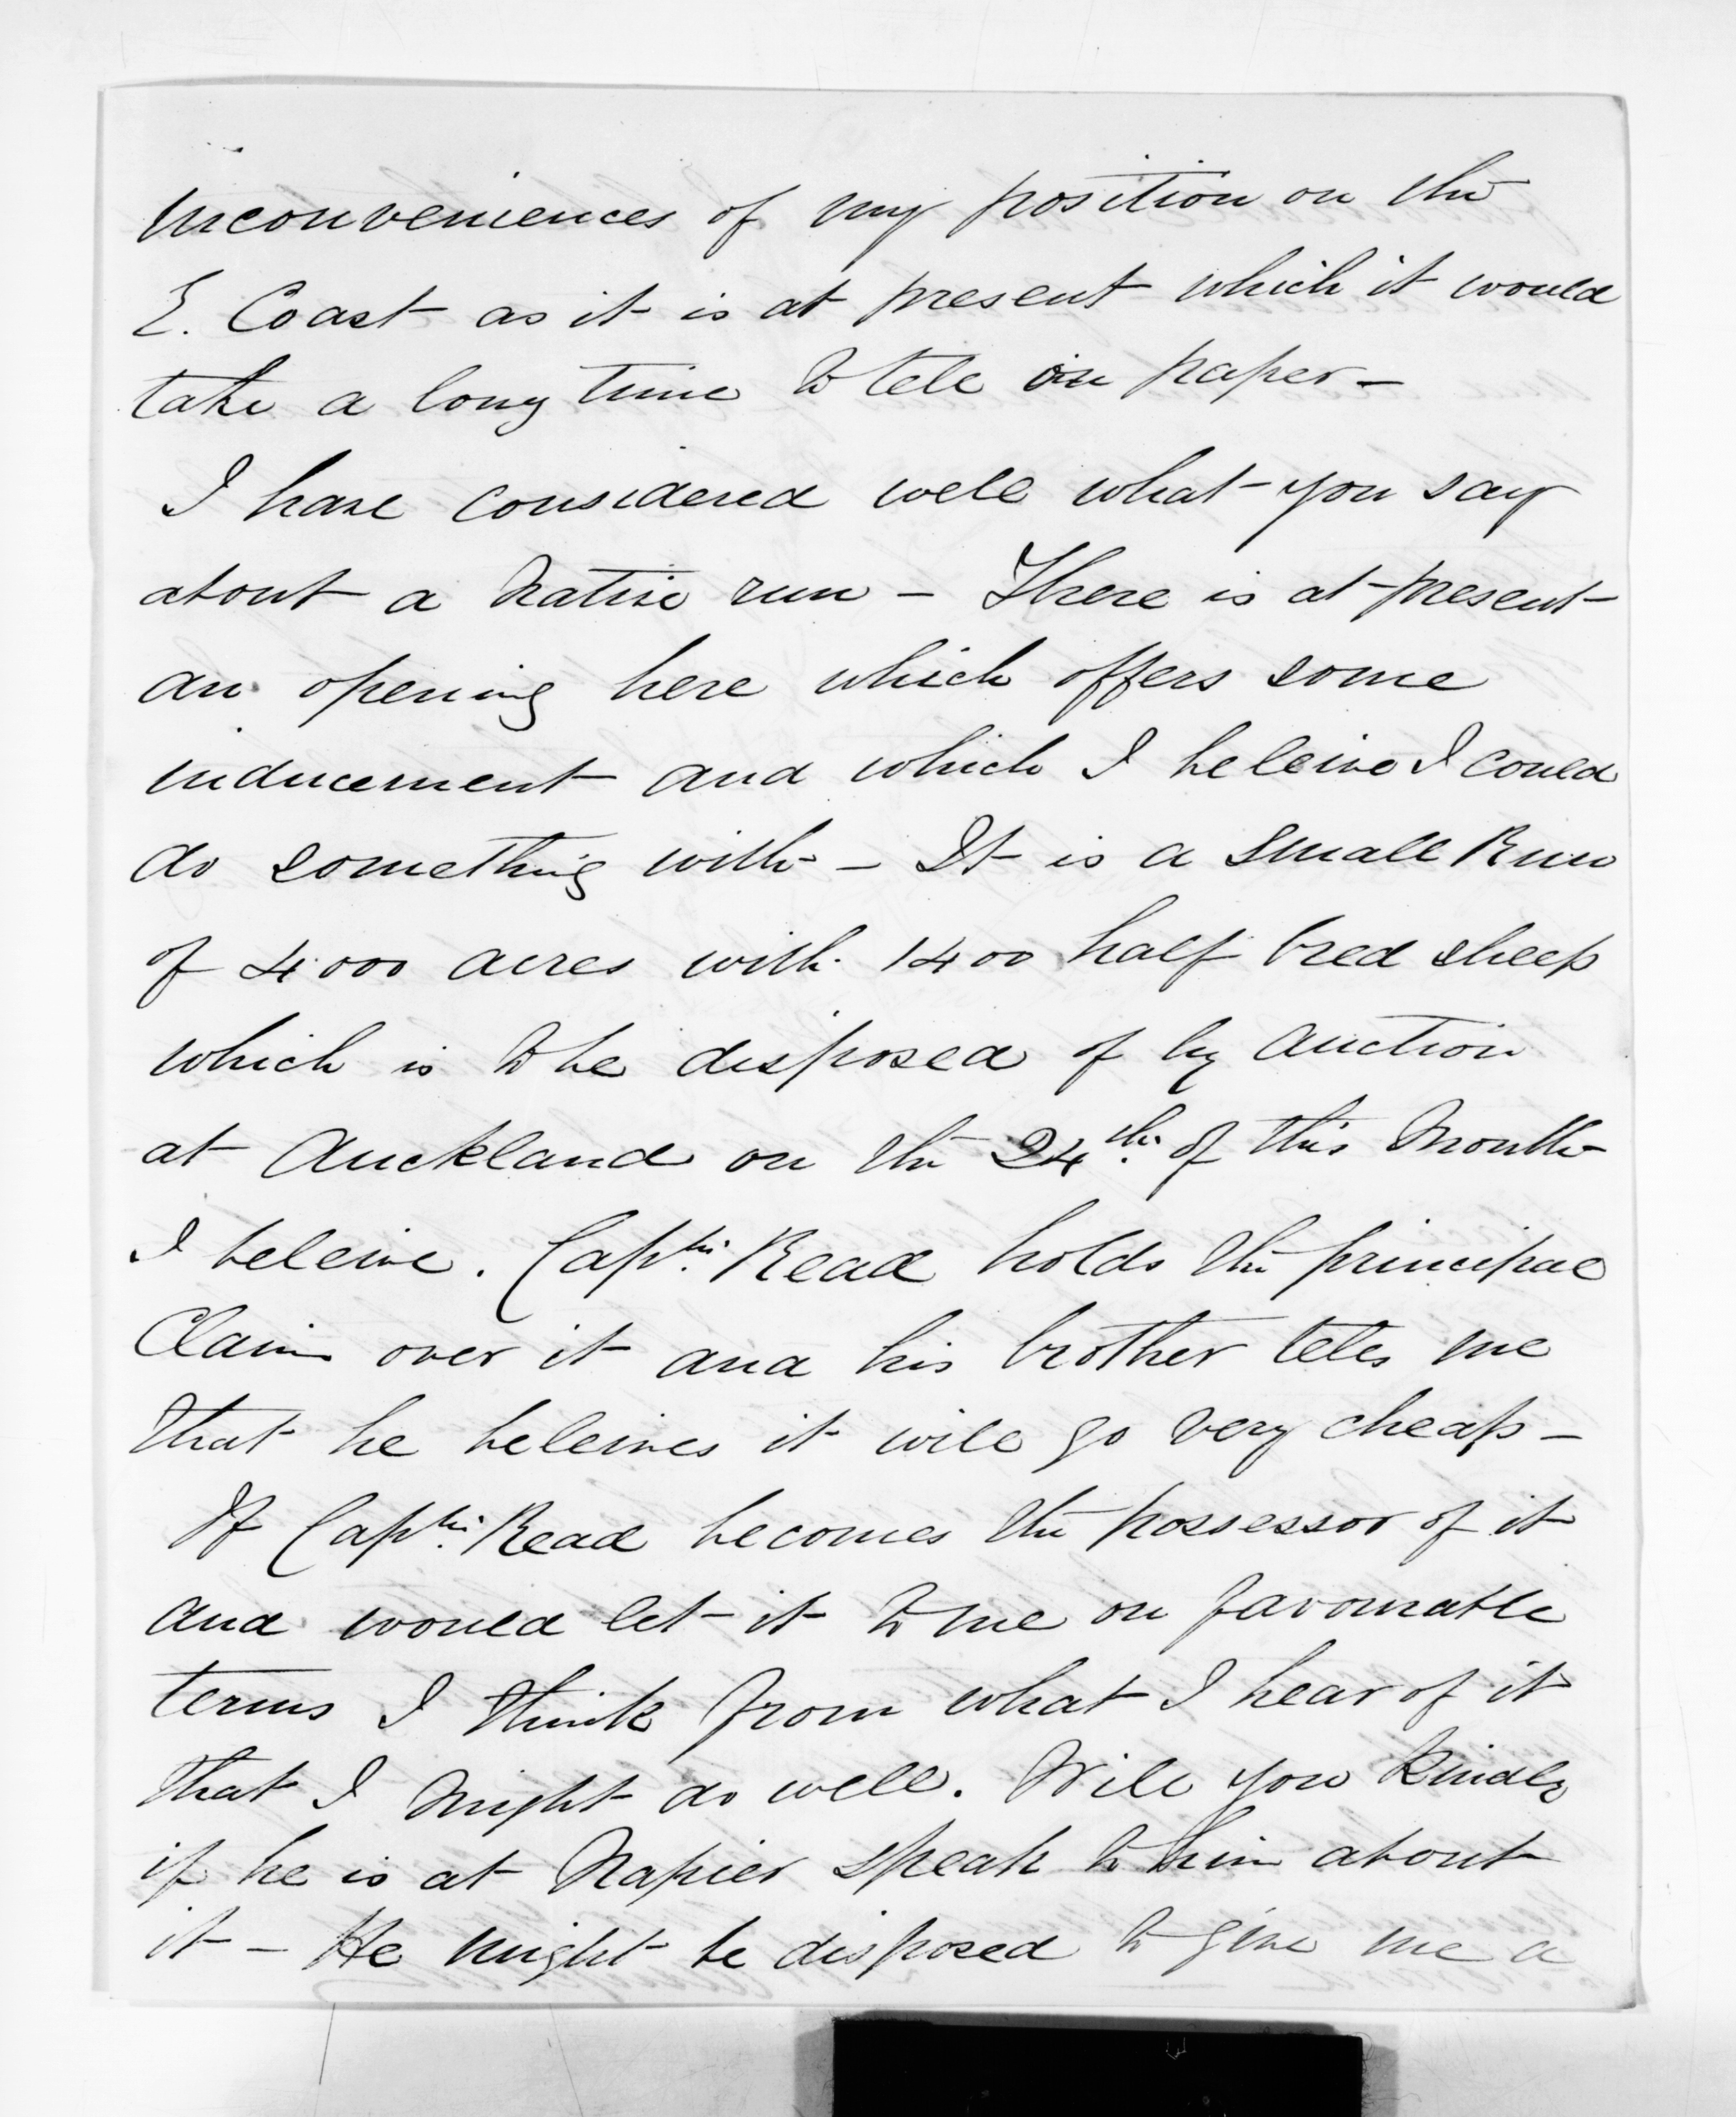 inconveniences of my position on the
E. Coast as it is at present which it would
take a long time to tell on paper -
I have considered well what you say
about a Native run - There is at present
an opening here which offers some
inducement and which I beleive I could
do something with - It is a small Run
of 4000 acres with 1400 half bred sheep
which is to be disposed of by auction
at Auckland on the 24th. of this Month
I beleive. Captn. Read holds the principal
Claim over it and his brother tells me
that he beleives it will go very cheap -
If Captn. Read becomes the possessor of it
and would let it to me on favourable
terms I think from what I hear of it
that I might do well. Will you kindly
if he is at Napier speak to him about
it - He might be disposed to give me a